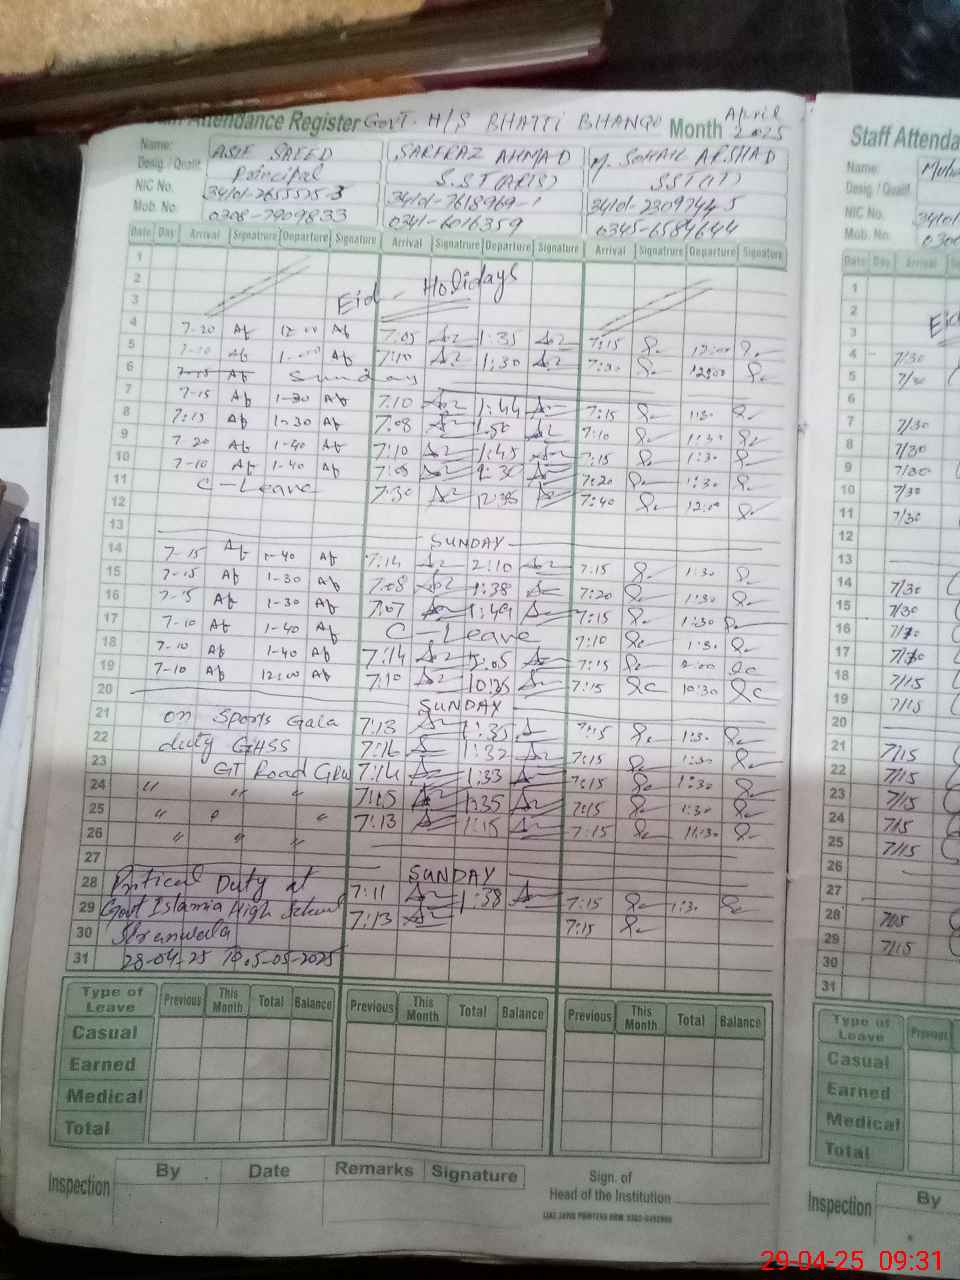 Attendance Register Govt. H/S BHATTI BHANGO Month April 2025
Name: ASIF SAEED SARFRAZ AHMAD M. SOHAIL ARSHAD
Desig. / Qualif. Principal S.ST(ARTS) SST(IT)
NIC No. 34101-2655525-3 34101-7618969-1 34101-2309744-5
Mob. No. 0308-7909833 0341-6016359 0345-6584644
Date Day Arrival Signatrure Departure Signature Arrival Signatrure Departure Signature Arrival Signatrure Departure Signature
1
2 Eid Holidays
3
4 7-20 12-00 7:05 1:35 7:15 12:00
5 7-10 7:10 1:30 12:00
6 7-15 Sunday
7 7-15 1-30 7:10 1:44 7:15 1:30
8 7:15 1-30 7:08 7:10 1:30
9 7-20 1-40 7:10 1:45 7:15 1:30
10 7-10 1-40 7:20 1:30
11 C-Leave 7:30 12:35 7:40 12:00
12
13 SUNDAY
14 7-15 1-40 7:14 2:10 7:15 1:30
15 7-15 1-30 7:08 1:38 7:20 1:30
16 7-15 1-30 7:07 1:49 7:15 1:30
17 7-10 1-40 C-Leave 7:10 1:30
18 7-10 1-40 7:14 7:15
19 7-10 12:00 7:10 10:35 7:15 10:30
20 SUNDAY
21 on Sports Gala 7:13 1:35 7:15 1:30
22 duty GHSS 7:16 1:32 7:15 1:30
23 GT Road GRW 7:14 1:33 7:15 1:30
24 " " " 7:15 1:35 7:15 1:30
25 " " " 7:13 1:15 7:15 11:30
26 " " "
27 SUNDAY
28 Duty at 7:11 1:38 7:15 1:30
29 Govt Islamia High School 7:13 7:15
30
31 28-04-25 To 5-05-2025
Type of Leave Previous This Month Total Balance Previous This Month Total Balance Previous This Month Total Balance
Casual
Earned
Medical
Total
Inspection By Date Remarks Signature
Sign. of
Head of the Institution
Staff Attenda
Name:
Desig. / Qualif.
NIC No.
Mob. No.
Date Day Arrival
1
2
3
4 7/30
5 7/30
6
7 7/30
8 7/30
9 7/30
10 7/30
11 7/30
12
13
14 7/30
15 7/30
16 7/30
17 7/30
18 7/15
19 7/15
20
21 7/15
22 7/15
23 7/15
24 7/15
25 7/15
26
27
28 7/15
29 7/15
30
31
Type of Leave Previous
Casual
Earned
Medical
Total
Inspection By
29-04-25 09:31